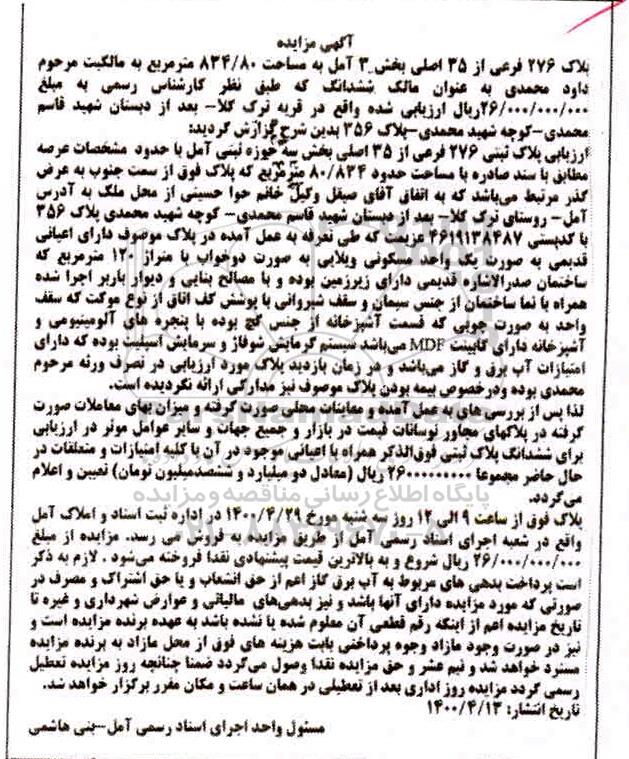 آگهی مزایده
پلاک ۲۷۶ فرعی از ۳۵ اصلی بخش ۳ آمل به مساحت ۸۳۴/۸۰ مترمربع به مالکیت مرحوم
داود محمدی به عنوان مالک ششدانگ که طبق نظر کارشناس رسمی به مبلغ
۲۶/۰۰۰/۰۰۰/۰۰۰ریال ارزیابی شده واقع در قریه ترک کلا- بعد از دبستان شهید قاسم
محمدی-کوچه شهید محمدی-پلاک ۳۵۶ بدین شرح گزارش گردید:
ارزیابی پلاک ثبتی ۲۷۶ فرعی از ۳۵ اصلی بخش سه حوزه ثبتی آمل با حدود مشخصات عرصه
مطابق با سند صادره با مساحت حدود ۸۰/۸۳۴ مترمربع که پلاک فوق از سمت جنوب به عرض
گذر مرتبط می‌باشد که به اتفاق آقای صیقل وکیل خانم حوا حسینی از محل ملک به آدرس
آمل- روستای ترک کلا- بعد از دبستان شهید قاسم محمدی- کوچه شهید محمدی پلاک ۳۵۶
با کدپستی ۴۶۱۹۱۳۸۴۸۷ عزیمت که طی تعرفه به عمل آمده در پلاک موصوف دارای اعیانی
قدیمی به صورت یک واحد مسکونی ویلایی به صورت دوخواب با متراژ ۱۲۰ مترمربع که
ساختمان صدرالاشاره قدیمی دارای زیرزمین بوده و با مصالح بنایی و دیوار باربر اجرا شده
همراه با نما ساختمان از جنس سیمان و سقف شیروانی با پوشش کف اتاق از نوع موکت که سقف
واحد به صورت چوبی که قسمت آشپزخانه از جنس گچ بوده با پنجره های آلومینیومی و
آشپزخانه دارای کابینت MDF می‌باشد سیستم گرمایش شوفاژ و سرمایش اسپلیت بوده که دارای
امتیازات آب برق و گاز می‌باشد و در زمان بازدید پلاک مورد ارزیابی در تصرف ورثه مرحوم
محمدی بوده ودرخصوص بیمه بودن پلاک موصوف نیز مدارکی ارائه نگردیده است.
لذا پس از بررسی های به عمل آمده و معاینات محلی صورت گرفته و میزان بهای معاملات صورت
گرفته در پلاکهای مجاور نوسانات قیمت در بازار و جمیع جهات و سایر عوامل موثر در ارزیابی
برای ششدانگ پلاک ثبتی فوق‌الذکر همراه با اعیانی موجود در آن با کلیه امتیازات و متعلقات در
حال حاضر مجموعا ۲۶۰۰۰۰۰۰۰۰۰ ریال (معادل دو میلیارد و ششصدمیلیون تومان) تعیین و اعلام
می‌گردد.
پلاک فوق از ساعت ۹ الی ۱۲ روز سه شنبه مورخ ۱۴۰۰/۴/۲۹ در اداره ثبت اسناد و املاک آمل
واقع در شعبه اجرای اسناد رسمی آمل از طریق مزایده به فروش می رسد. مزایده از مبلغ
۲۶/۰۰۰/۰۰۰/۰۰۰ ریال شروع و به بالاترین قیمت پیشنهادی نقدا فروخته می‌شود . لازم به ذکر
است پرداخت بدهی های مربوط به آب برق گاز اعم از حق انشعاب و یا حق اشتراک و مصرف در
صورتی که مورد مزایده دارای آنها باشد و نیز بدهی‌های مالیاتی و عوارض شهرداری و غیره تا
تاریخ مزایده اعم از اینکه رقم قطعی آن معلوم شده یا نشده باشد به عهده برنده مزایده است و
نیز در صورت وجود مازاد وجوه پرداختی بابت هزینه های فوق از محل مازاد به برنده مزایده
مسترد خواهد شد و نیم عشر و حق مزایده نقدا وصول می‌گردد ضمنا چنانچه روز مزایده تعطیل
رسمی گردد مزایده روز اداری بعد از تعطیلی در همان ساعت و مکان مقرر برگزار خواهد شد.
تاریخ انتشار: ۱۴۰۰/۴/۱۳
مسئول واحد اجرای اسناد رسمی آمل-بنی هاشمی
پایگاه اطلاع رسانی مناقصه و مزایده